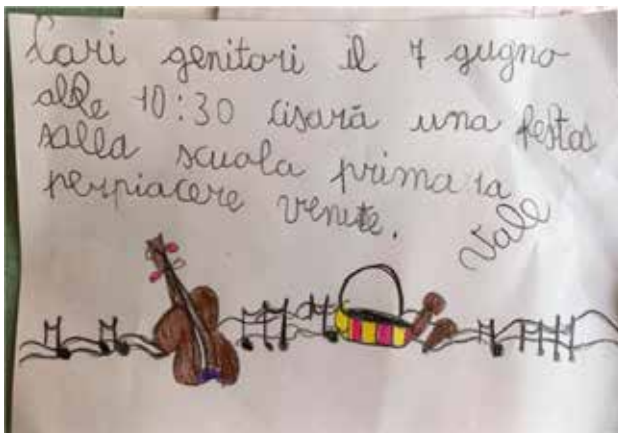 Cari genitori il 7 gugno
alle 10:30 cisarà una festa
salla scuola primaria
perpiacere venite.
Vale